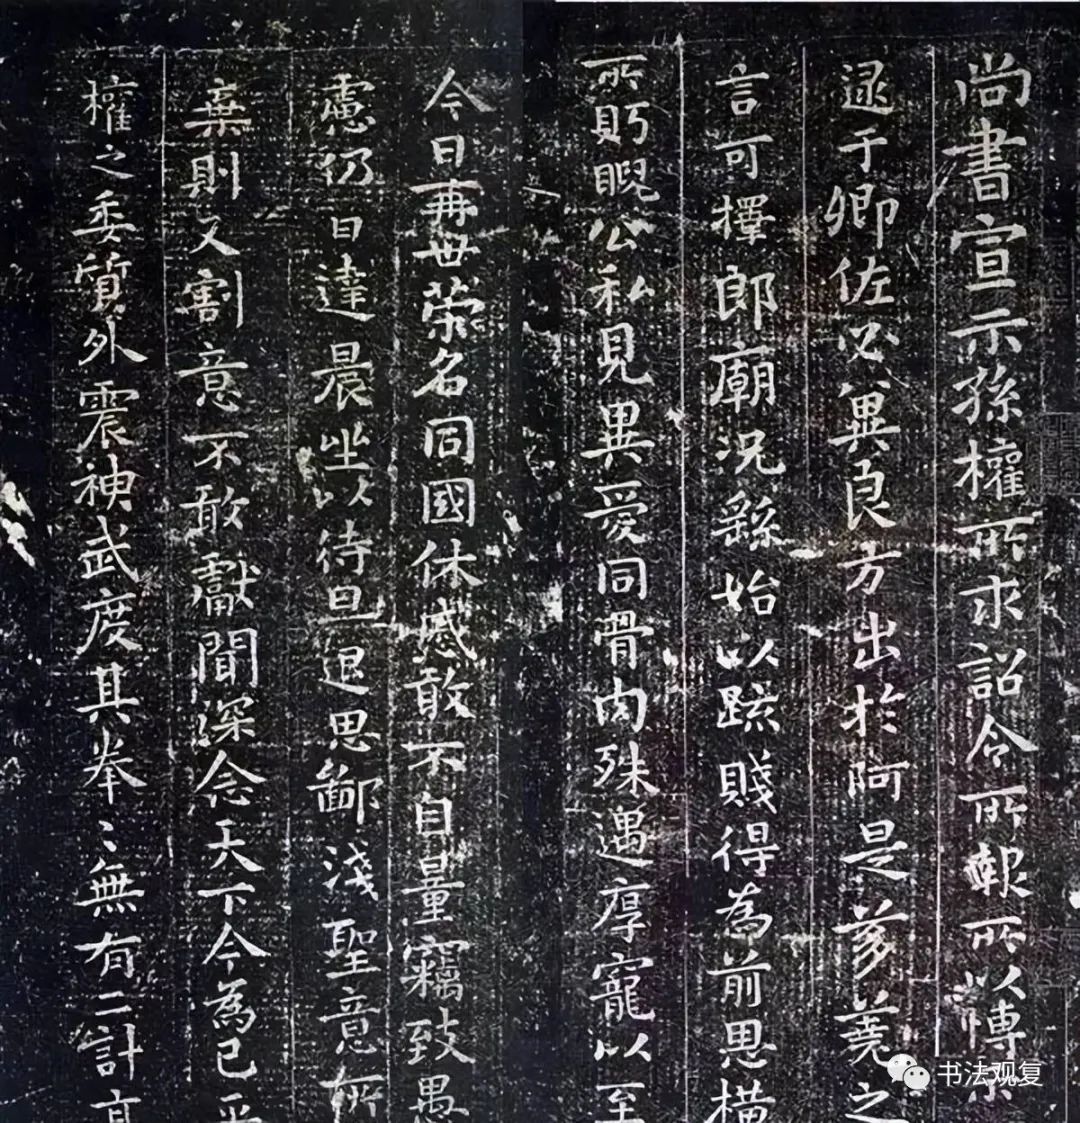 尚書宣示孫權所求詔令所報所以博示
逮于卿佐必冀良方出於阿是芻蕘之
言可擇郎廟況繇始以疏賤得為前恩橫
所眄睨公私見異愛同骨肉殊遇厚寵以至
今日再世榮名同國休慼敢不自量竊致愚
慮仍日達晨坐以待旦退思鄙淺聖意所
棄則又割意不敢獻聞深念天下今為已平
權之委質外震神武度其拳〻無有二計高
书法观复